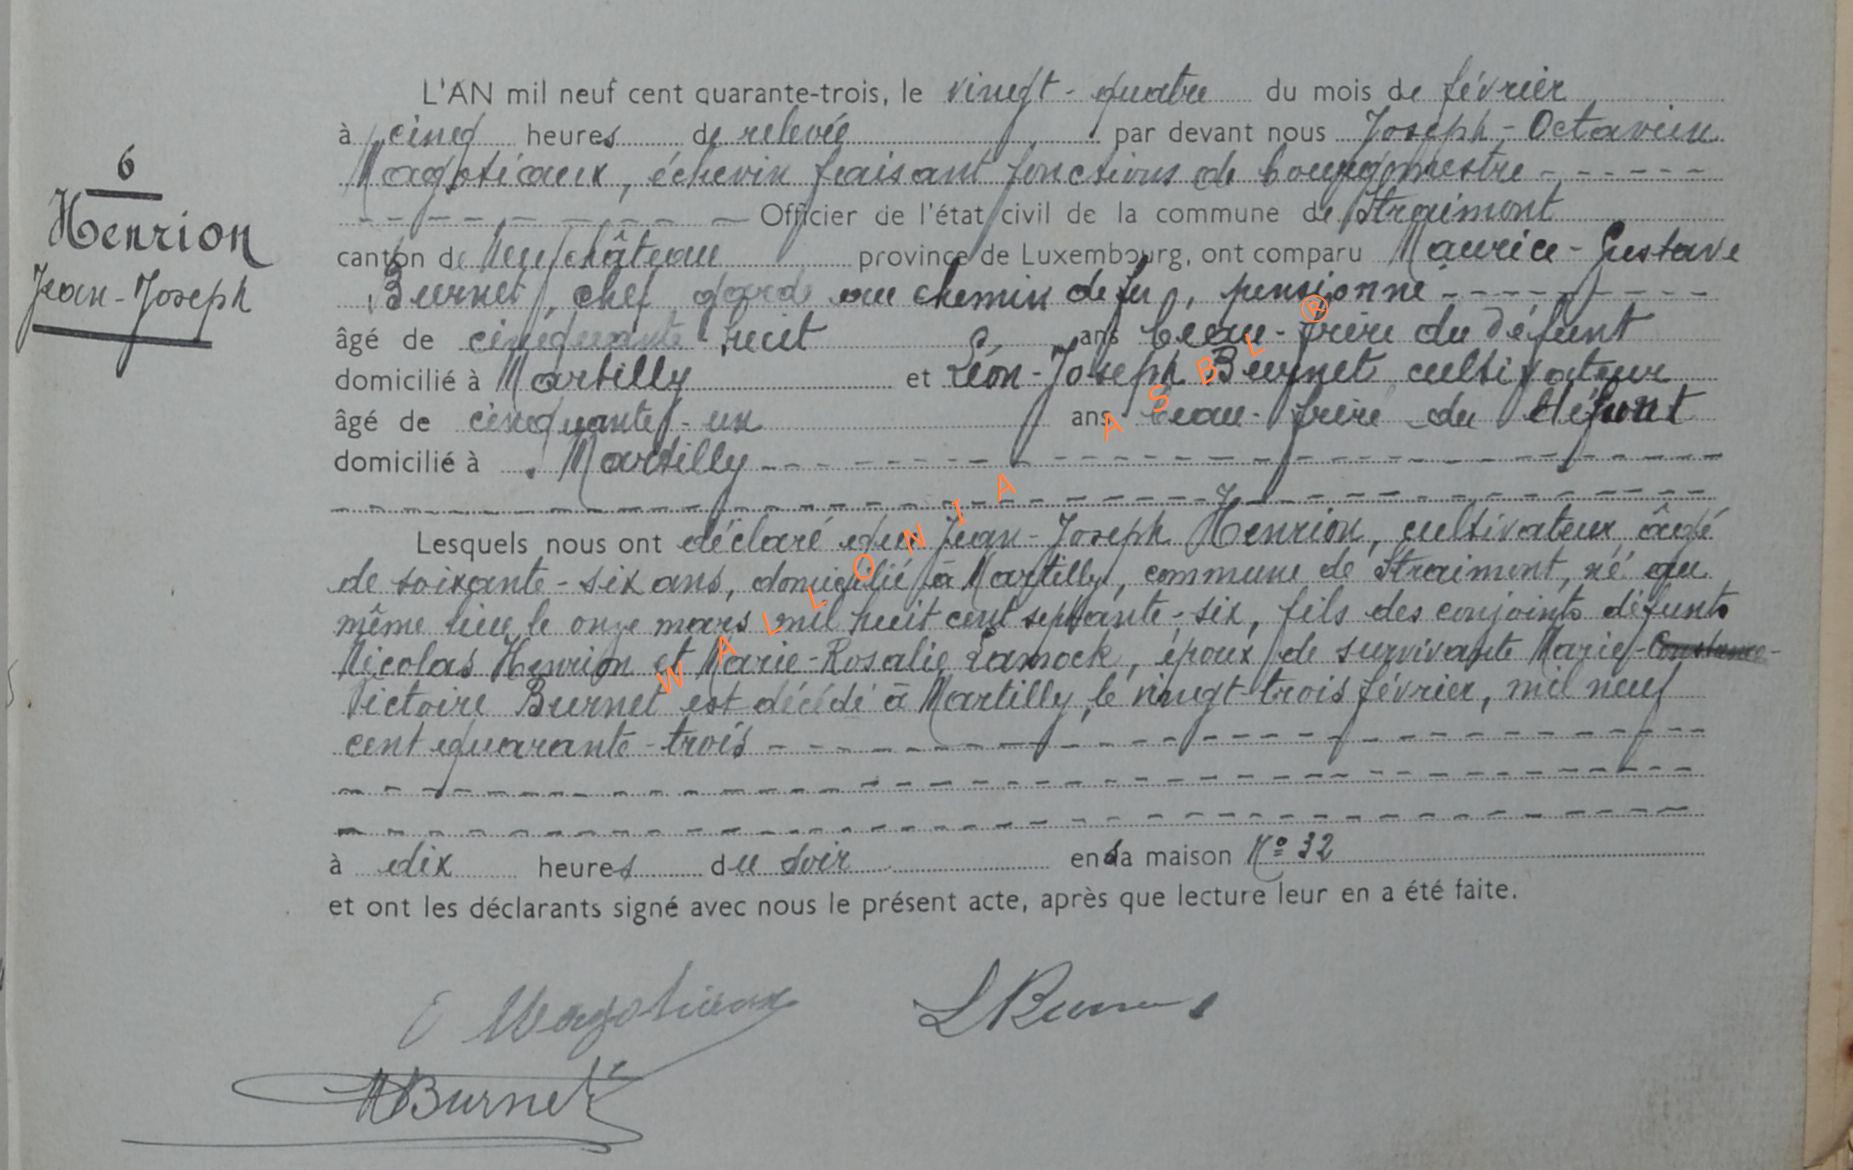 6
Henrion
Jean-Joseph
L'AN mil neuf cent quarante-trois, le vingt-quatre du mois de février
à cinq heures de relevée par devant nous Joseph-Octavien
Magotiaux, échevin faisant fonctions de bourgmestre
Officier de l'état civil de la commune de Straimont
canton de Neufchâteau province de Luxembourg, ont comparu Maurice-Gustave
Burnet, chef garde au chemin de fer, pensionné
âgé de cinquante huit ans beau-frère du défunt
domicilié à Martilly et Léon-Joseph Burnet cultivateur
âgé de cinquante-un ans beau-frère du défunt
domicilié à Martilly
Lesquels nous ont déclaré que Jean-Joseph Henrion, cultivateur âgé
de soixante-six ans, domicilié à Martilly, commune de Straimont, né au
même lieu le onze mars mil huit cent septante-six, fils des conjoints défunts
Nicolas Henrion et Marie-Rosalie Lamock, époux de survivante Marie-Constance-
Victoire Burnet est décédé à Martilly, le vingt-trois février, mil neuf
cent quarante-trois
à dix heures du soir en sa maison N° 32
et ont les déclarants signé avec nous le présent acte, après que lecture leur en a été faite.
Magotiaux
L Burnet
M Burnet
WALLONIA ASBL ®